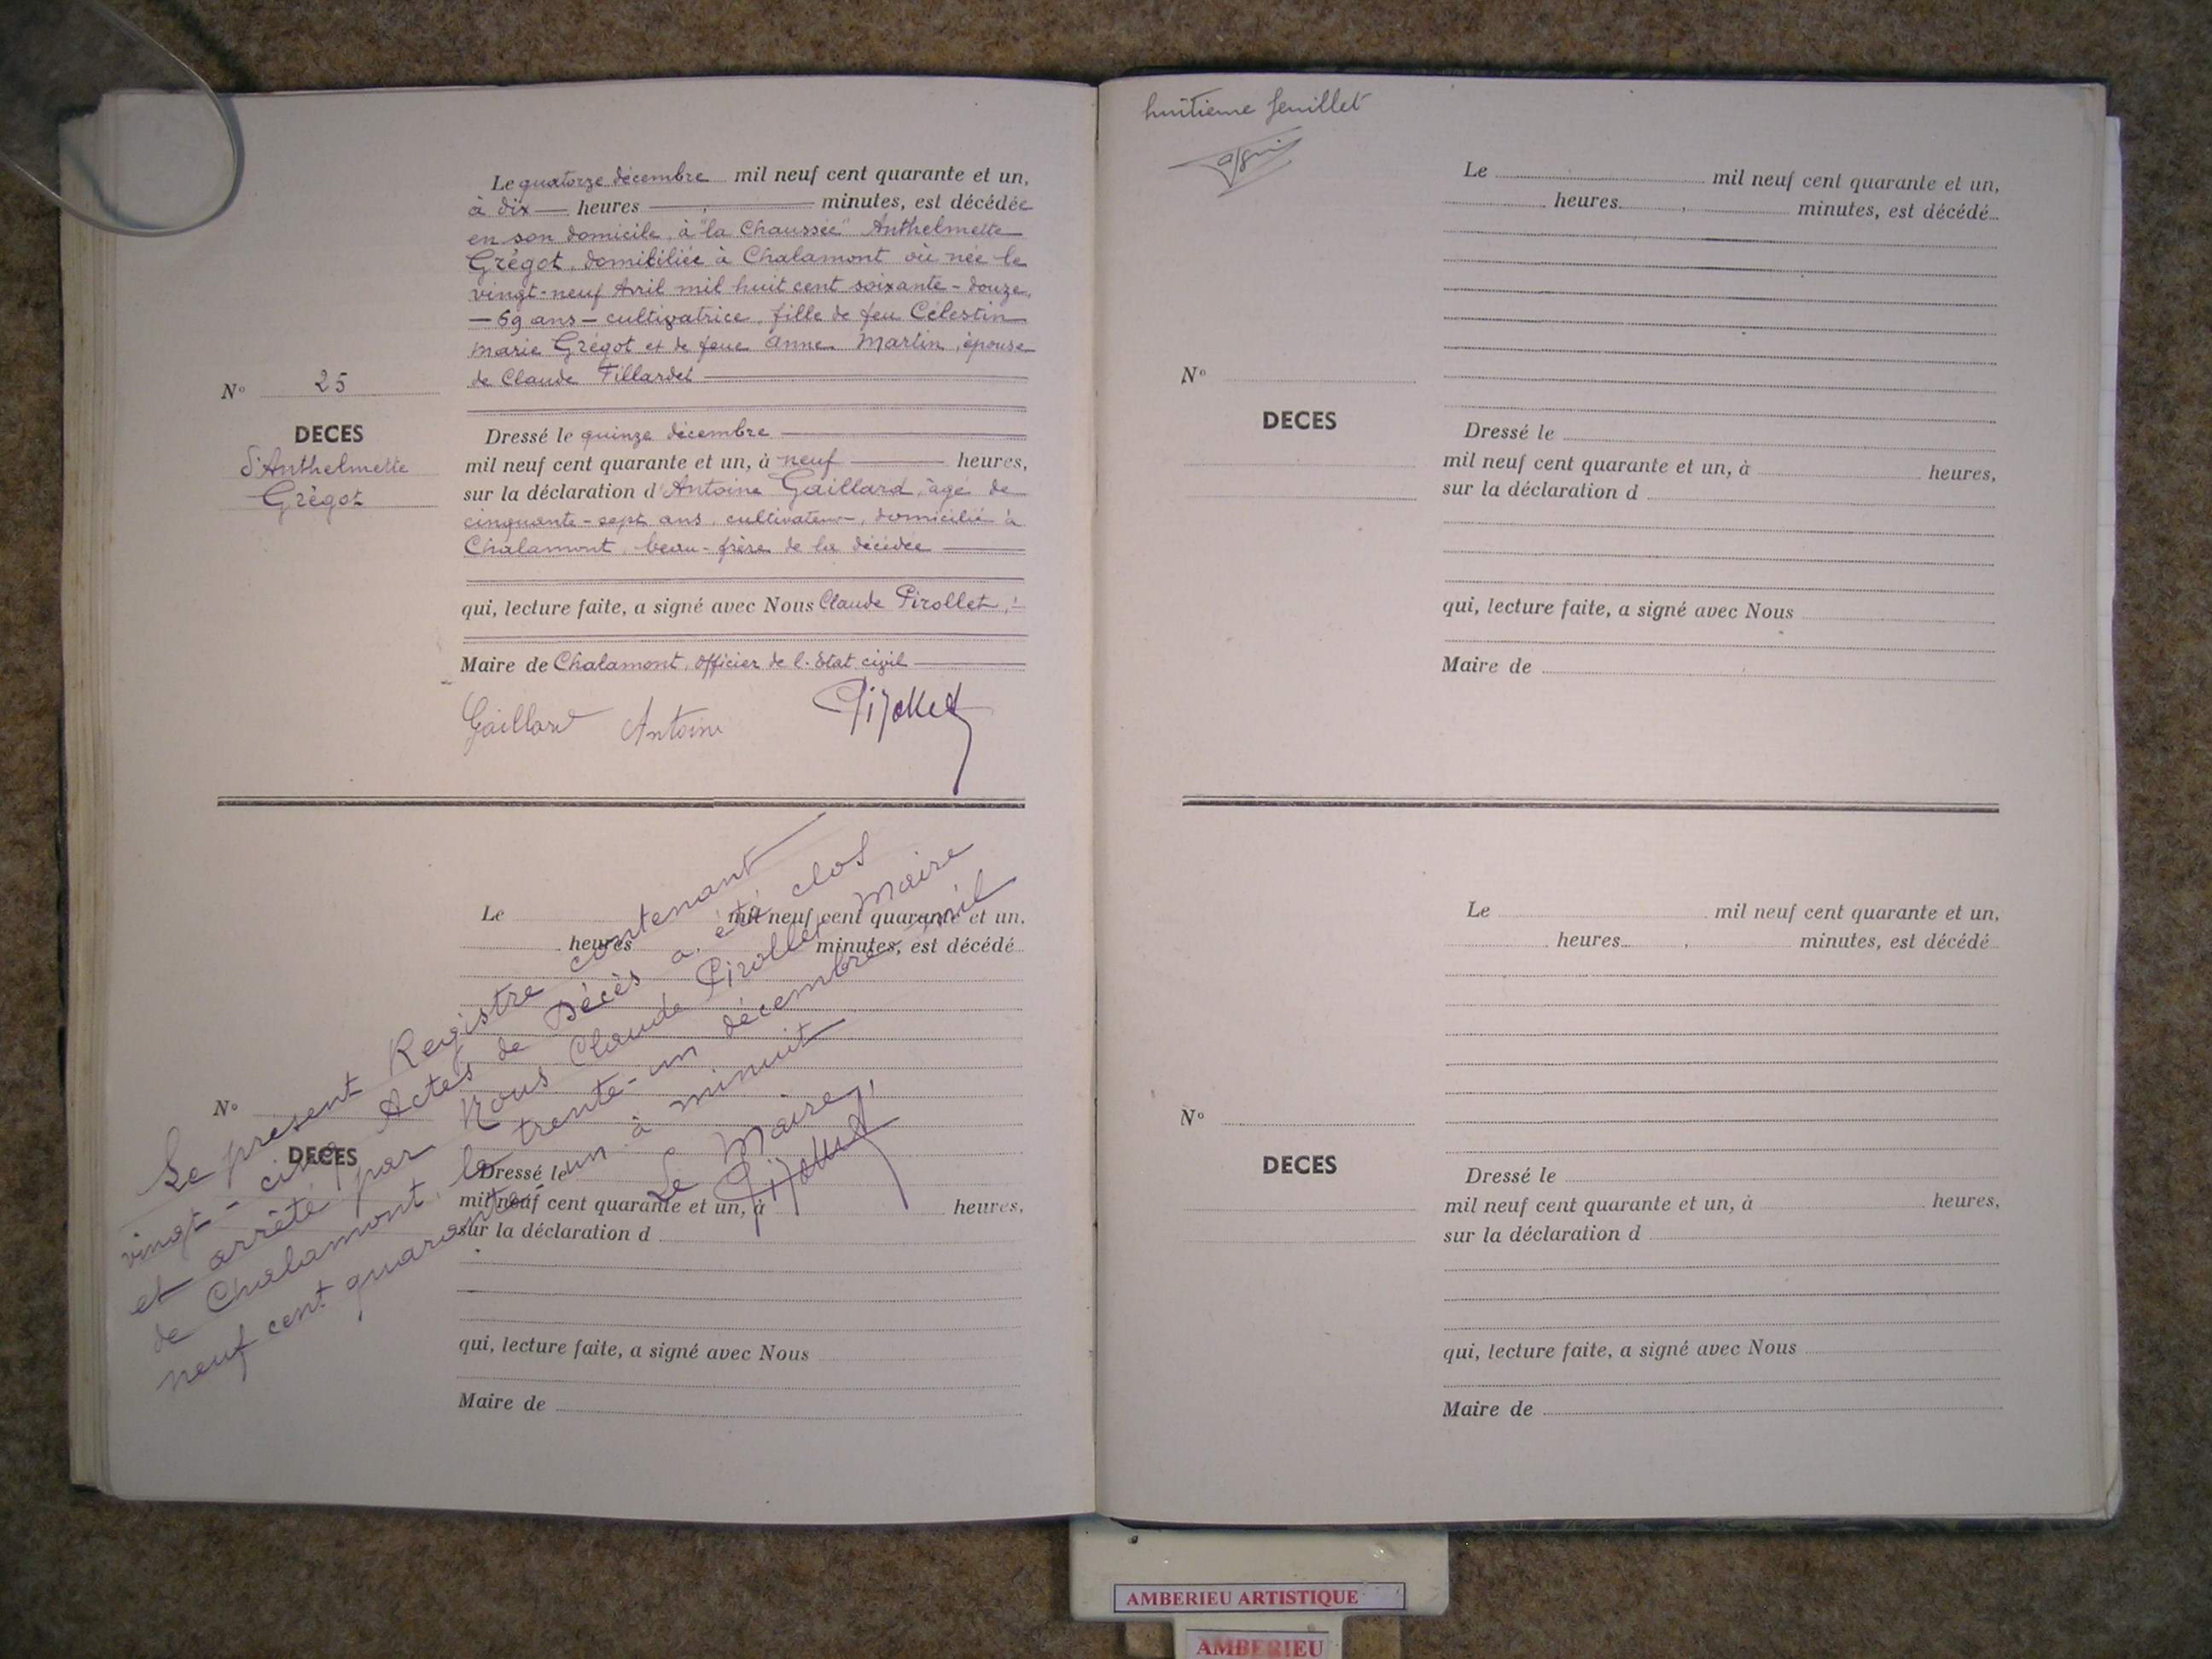 Le quatorze décembre mil neuf cent quarante et un,
à dix heures minutes, est décédée
en son domicile, à "la Chaussée" Anthelmette
Grégot, domiciliée à Chalamont où née le
vingt-neuf Avril mil huit cent soixante-douze,
— 69 ans — cultivatrice, fille de feu Célestin
Marie Grégot et de feue Anne Martin, épouse
de Claude Tillardet
N° 25
DECES
d'Anthelmette
Grégot
Dressé le quinze décembre
mil neuf cent quarante et un, à neuf heures,
sur la déclaration d'Antoine Gaillard, âgé de
cinquante-sept ans, cultivateur, domicilié à
Chalamont, beau-frère de la décédée
qui, lecture faite, a signé avec Nous Claude Pirollet,
Maire de Chalamont, officier de l'Etat civil
Gaillard Antoine Pirollet
Le mil neuf cent quarante et un,
heures minutes, est décédé
N°
DECES
Dressé le
mil neuf cent quarante et un, à heures,
sur la déclaration d
qui, lecture faite, a signé avec Nous
Maire de
Le présent Registre contenant
vingt-cinq Actes de Décès a été clos
et arrêté par Nous Claude Pirollet, Maire
de Chalamont, le trente-un décembre mil
neuf cent quarante-un à minuit
Le Maire,
Pirollet
huitième feuillet
Le mil neuf cent quarante et un,
heures minutes, est décédé
N°
DECES
Dressé le
mil neuf cent quarante et un, à heures,
sur la déclaration d
qui, lecture faite, a signé avec Nous
Maire de
Le mil neuf cent quarante et un,
heures minutes, est décédé
N°
DECES
Dressé le
mil neuf cent quarante et un, à heures,
sur la déclaration d
qui, lecture faite, a signé avec Nous
Maire de
AMBERIEU ARTISTIQUE
AMBERIEU